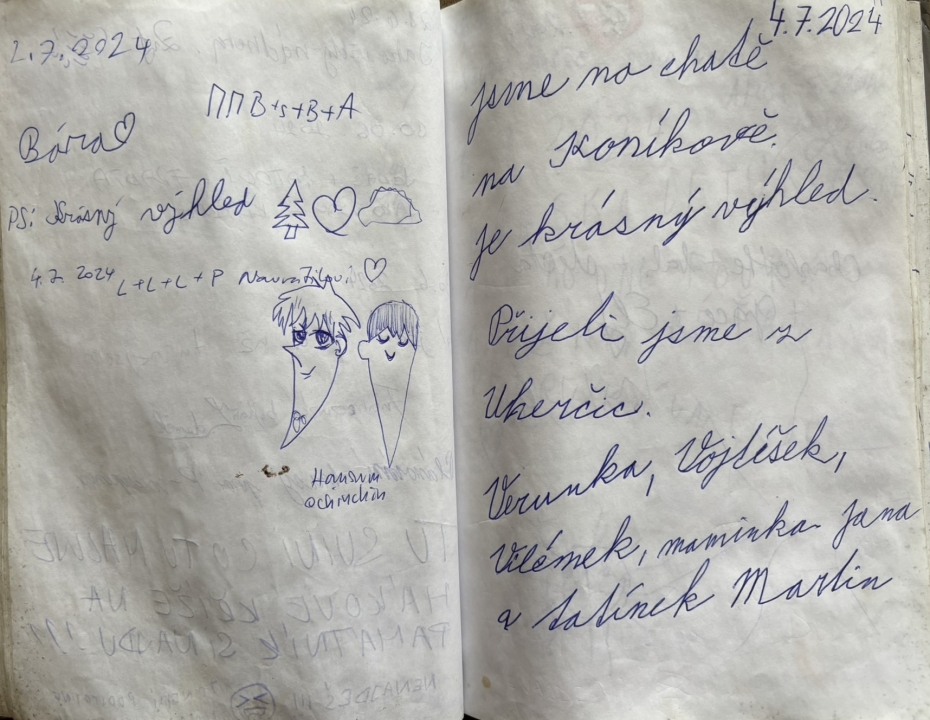 2.7.2024
ППB+s+B+A
Bára♡
PS: Krásný výhled
4.7.2024 L+L+L+P Navrátilovi ♡
4.7.2024
jsme na chatě
na Koníkově.
je krásný výhled.
Přijeli jsme z
Uherčic.
Verunka, Vojtíšek,
Vilémek, maminka Jana
a tatínek Martin